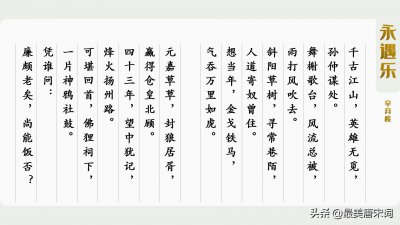 永遇乐
辛弃疾
千古江山，英雄无觅，
孙仲谋处。
舞榭歌台，风流总被，
雨打风吹去。
斜阳草树，寻常巷陌，
人道寄奴曾住。
想当年，金戈铁马，
气吞万里如虎。
元嘉草草，封狼居胥，
赢得仓皇北顾。
四十三年，望中犹记，
烽火扬州路。
可堪回首，佛狸祠下，
一片神鸦社鼓。
凭谁问：
廉颇老矣，尚能饭否？
头条 @最美唐宋词